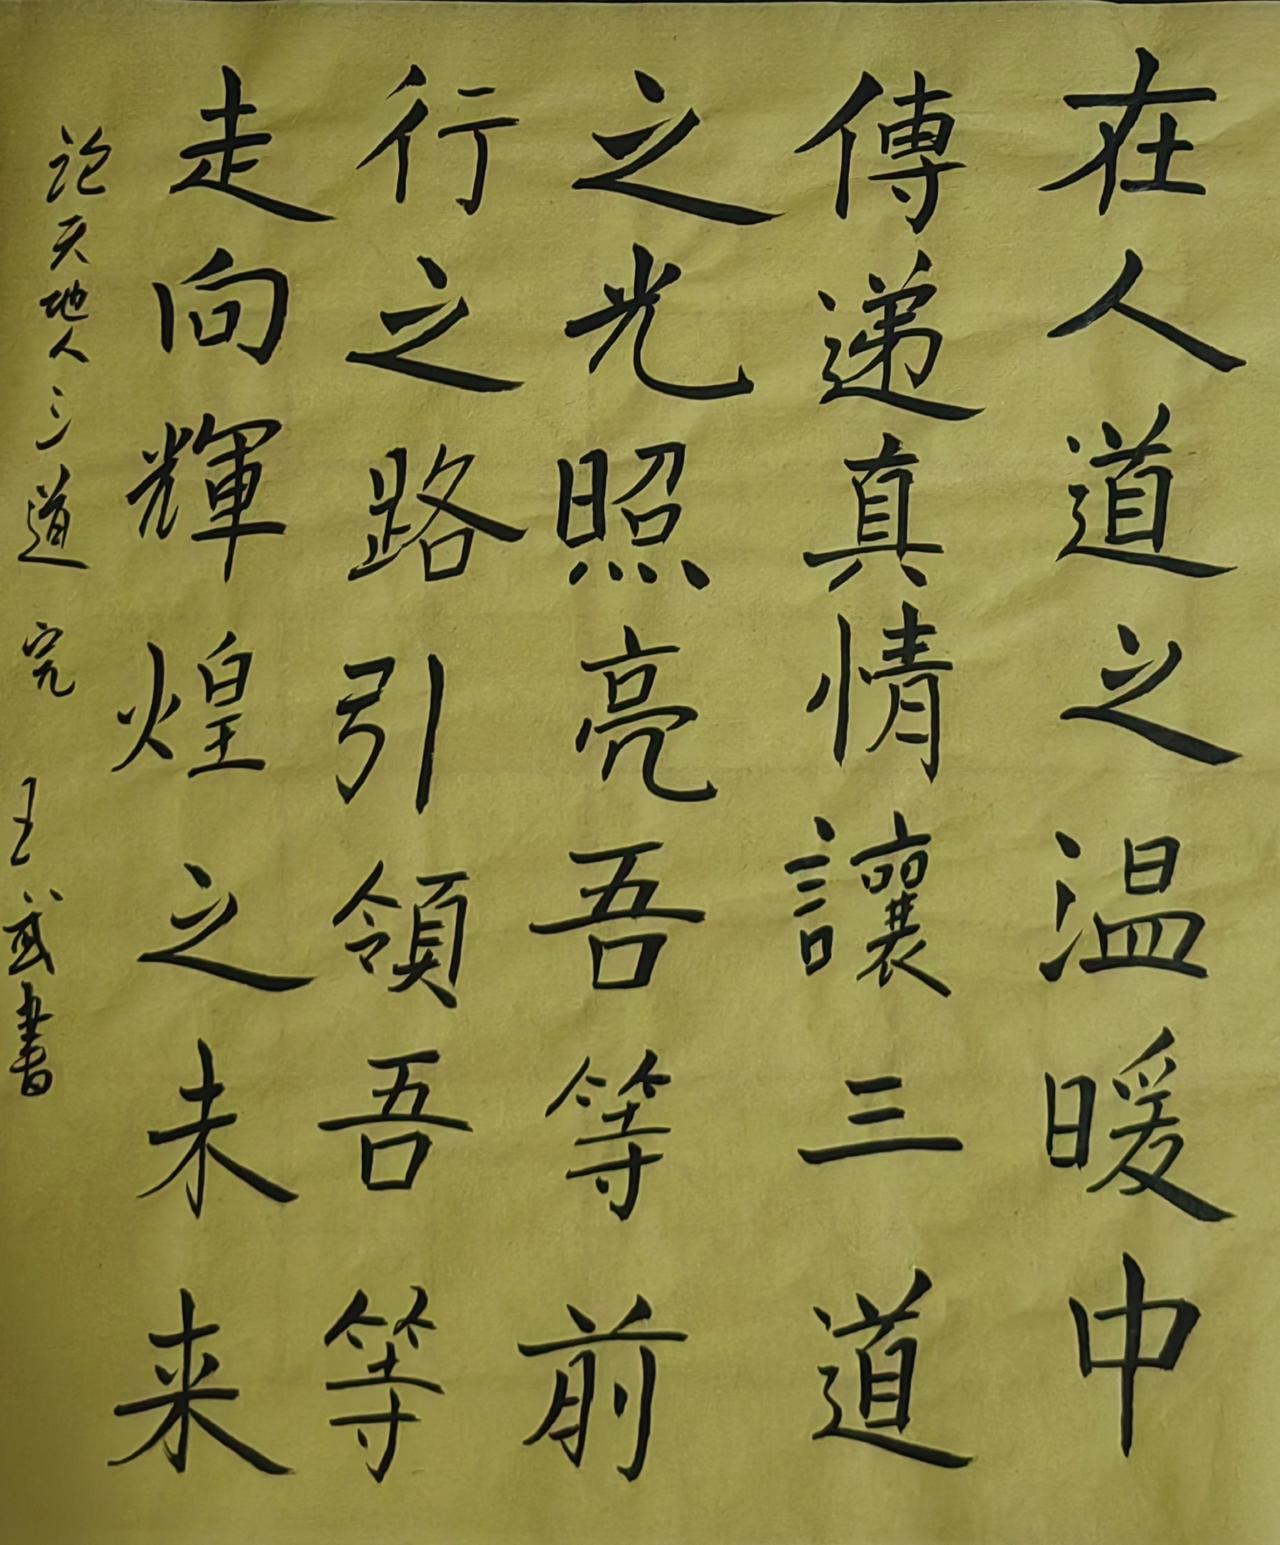 在人道之温暖中
傳递真情讓三道
之光照亮吾等前
行之路引領吾等
走向輝煌之未来
论天地人三道 完 王武書